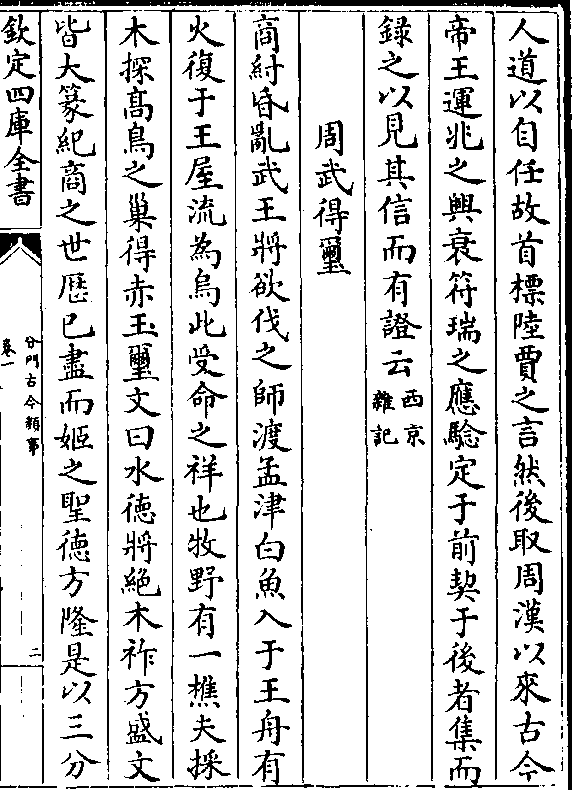 人道以自任故首標陸賈之言然後取周漢以來古今
帝王運兆之興衰符瑞之應驗定于前契于後者集而
錄之以見其信而有證云西京
雜記
周武得璽
商紂昏亂武王將欲伐之師渡孟津白魚入于王舟有
火復于王屋流為烏此受命之祥也牧野有一樵夫採
木探髙鳥之巢得赤玉璽文曰水德將絕木祚方盛文
皆大篆紀商之世厯已盡而姬之聖德方隆是以三分
欽定四庫全書
分門古今類事
卷一
二